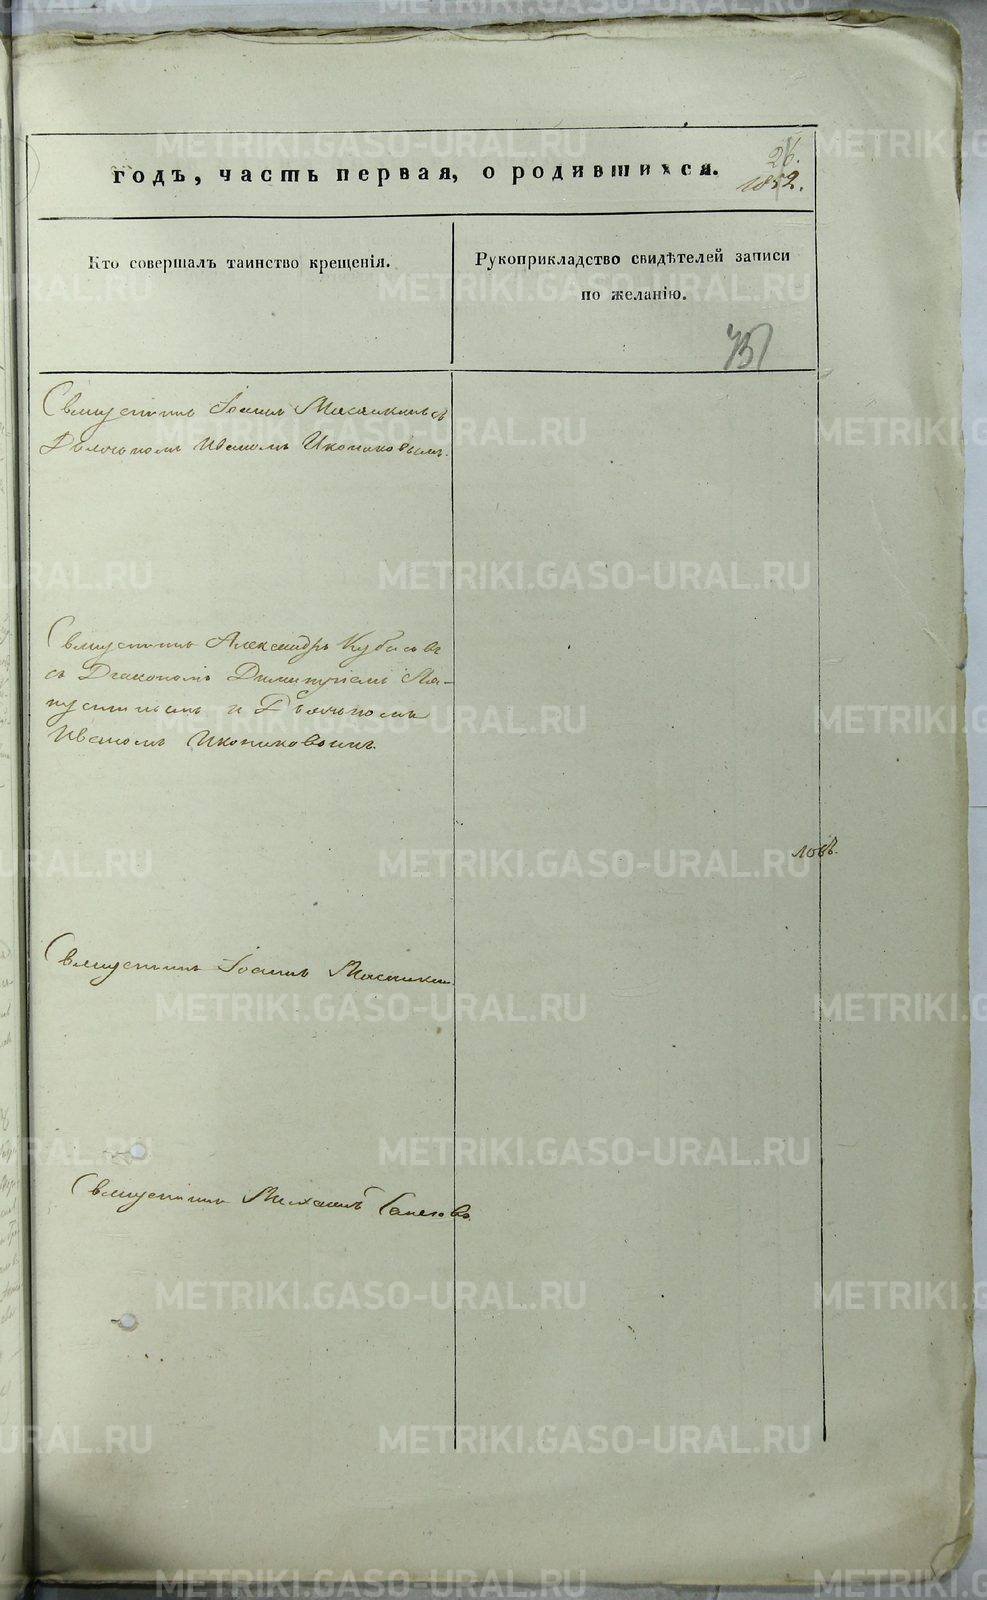 годъ, часть первая, о родившихся.
26.
1052.
Кто совершалъ таинство крещенія.
Рукоприкладство свидѣтелей записи
по желанію.
Священникъ Іоаннъ съ
Дьячкомъ Иваномъ Иконниковымъ.
Священникъ Александръ Кубасовъ
съ Діакономъ Димитріемъ Ла-
пустинымъ и Дьячкомъ
Иваномъ Иконниковымъ.
ловъ.
Священникъ Іоаннъ
Священникъ Михаилъ
METRIKI.GASO-URAL.RU